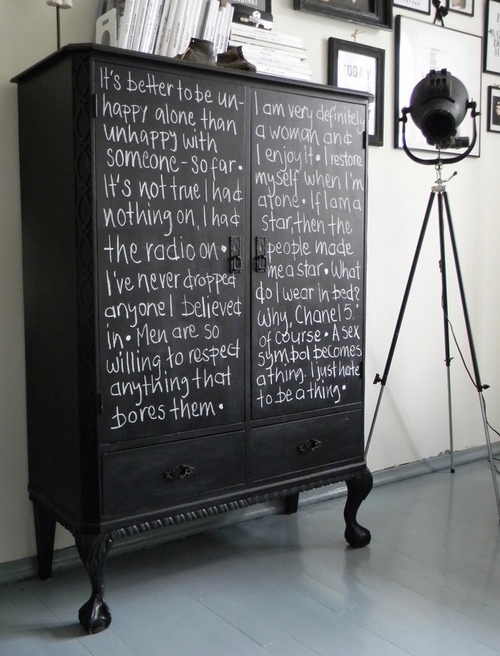 It's better to be un-
happy alone than
unhappy with
someone - so far.
It's not true I had
nothing on, I had
the radio on.
I've never dropped
anyone I believed
in. Men are so
willing to respect
anything that
bores them.
I am very definitely
a woman and
I enjoy it. I restore
myself when I'm
alone. If I am a
star, then the
people made
me a star. What
do I wear in bed?
Why, Chanel 5.
of course. A sex
symbol becomes
a thing. I just hate
to be a thing.
TODAY